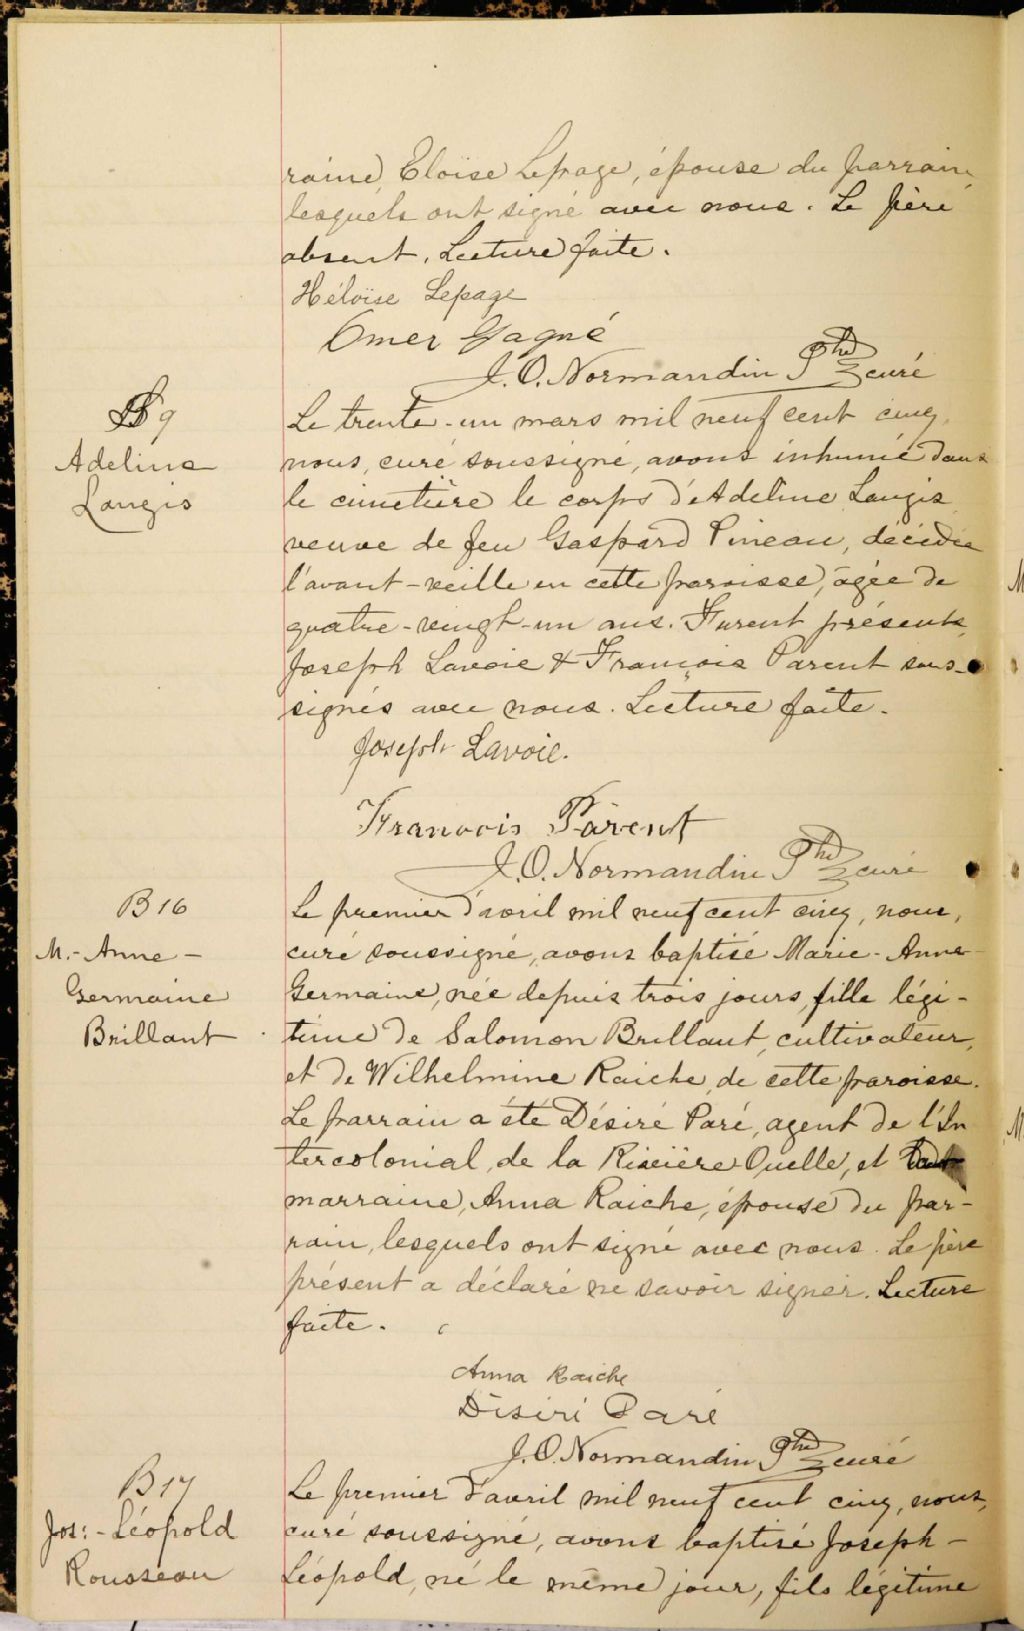 raine, Eloïse Lepage, épouse du parrain,
lesquels ont signé avec nous. Le père
absent. Lecture faite.
Héloïse Lepage
Omer Gagné
J. O. Normandin Ptre curé
S 9
Adeline
Langis
Le trente-un mars mil neuf cent cinq,
nous, curé soussigné, avons inhumé dans
le cimetière le corps d'Adeline Langis
veuve de feu Gaspard Pineau, décédée
l'avant-veille en cette paroisse, âgée de
quatre-vingt-un ans. Furent présents,
Joseph Lavoie & François Parent sous-
signés avec nous. Lecture faite.
Joseph Lavoie.
François Parent
J. O. Normandin Ptre curé
B 16
M.-Anne-
Germaine
Brillant
Le premier d'avril mil neuf cent cinq, nous,
curé soussigné, avons baptisé Marie-Anne-
Germaine, née depuis trois jours, fille légi-
time de Salomon Brillant, cultivateur,
et de Wilhelmine Raiche, de cette paroisse.
Le parrain a été Désiré Paré, agent de l'In
tercolonial, de la Rivière Ouelle, et
marraine, Anna Raiche, épouse du par-
rain, lesquels ont signé avec nous. Le père
présent a déclaré ne savoir signer. Lecture
faite.
Anna Raiche
Désiré Paré
J. O. Normandin Ptre curé
B 17
Jos:-Léopold
Rousseau
Le premier d'avril mil neuf cent cinq, nous,
curé soussigné, avons baptisé Joseph-
Léopold, né le même jour, fils légitime